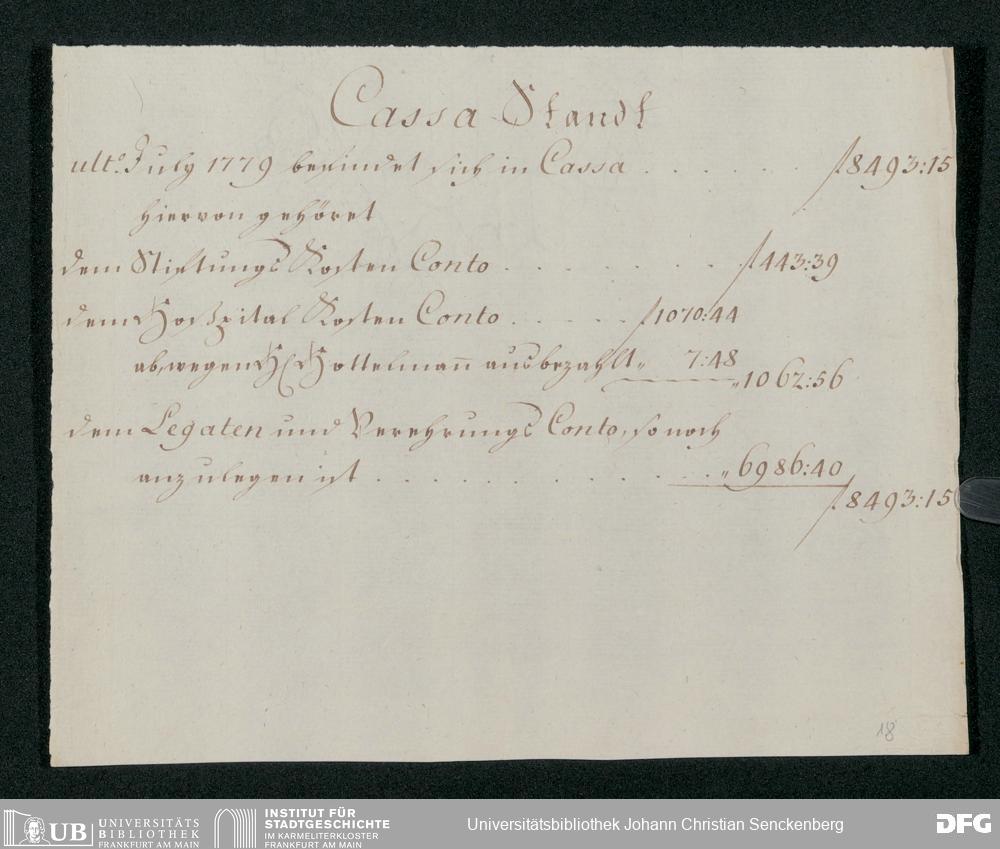 Cassa Standt
ulto. July 1779 befindet sich in Cassa . . . . . . . f 8493:15
hiervon gehöret
dem Stiftungs Kosten Conto . . . . . . . f 443:39
dem Hospital Kosten Conto . . . . . f 1070:44
ab, wegen H. Hottelmañ ausbezahlt „ 7:48 „ 1062:56
dem Legaten und Verehrungs Conto, so noch
anzulegen ist . . . . . . . . . . . . „ 6986:40
f 8493:15
18
UB UNIVERSITÄTS
BIBLIOTHEK
FRANKFURT AM MAIN
INSTITUT FÜR
STADTGESCHICHTE
IM KARMELITERKLOSTER
FRANKFURT AM MAIN
Universitätsbibliothek Johann Christian Senckenberg
DFG